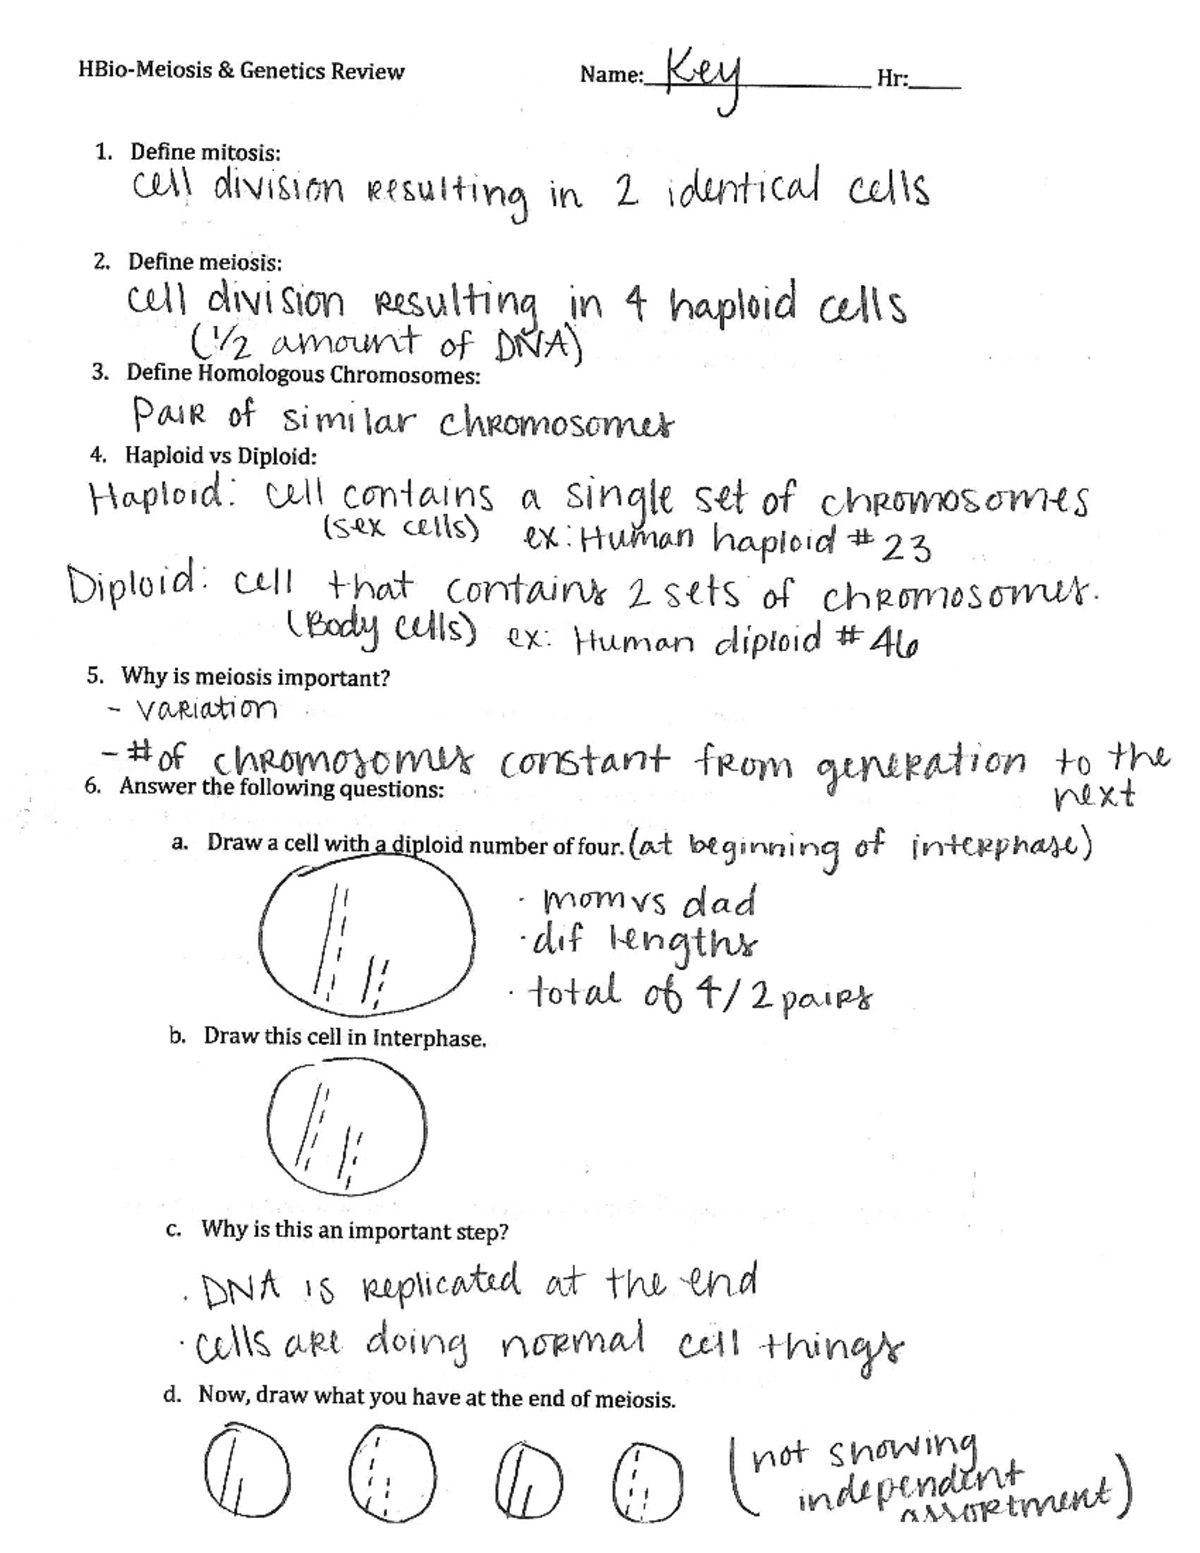 HBio-Meiosis & Genetics Review Name: Key Hr:
1. Define mitosis:
cell division resulting in 2 identical cells
2. Define meiosis:
cell division resulting in 4 haploid cells
(1/2 amount of DNA)
3. Define Homologous Chromosomes:
Pair of similar chromosomes
4. Haploid vs Diploid:
Haploid: cell contains a single set of chromosomes
(sex cells) ex: Human haploid # 23
Diploid: cell that contains 2 sets of chromosomes.
(Body cells) ex: Human diploid # 46
5. Why is meiosis important?
- variation
- # of chromosomes constant from generation to the
next
6. Answer the following questions:
a. Draw a cell with a diploid number of four. (at beginning of interphase)
· mom vs dad
· dif lengths
· total of 4/2 pairs
b. Draw this cell in Interphase.
c. Why is this an important step?
· DNA is replicated at the end
· cells are doing normal cell things
d. Now, draw what you have at the end of meiosis.
(not showing
independent
assortment)